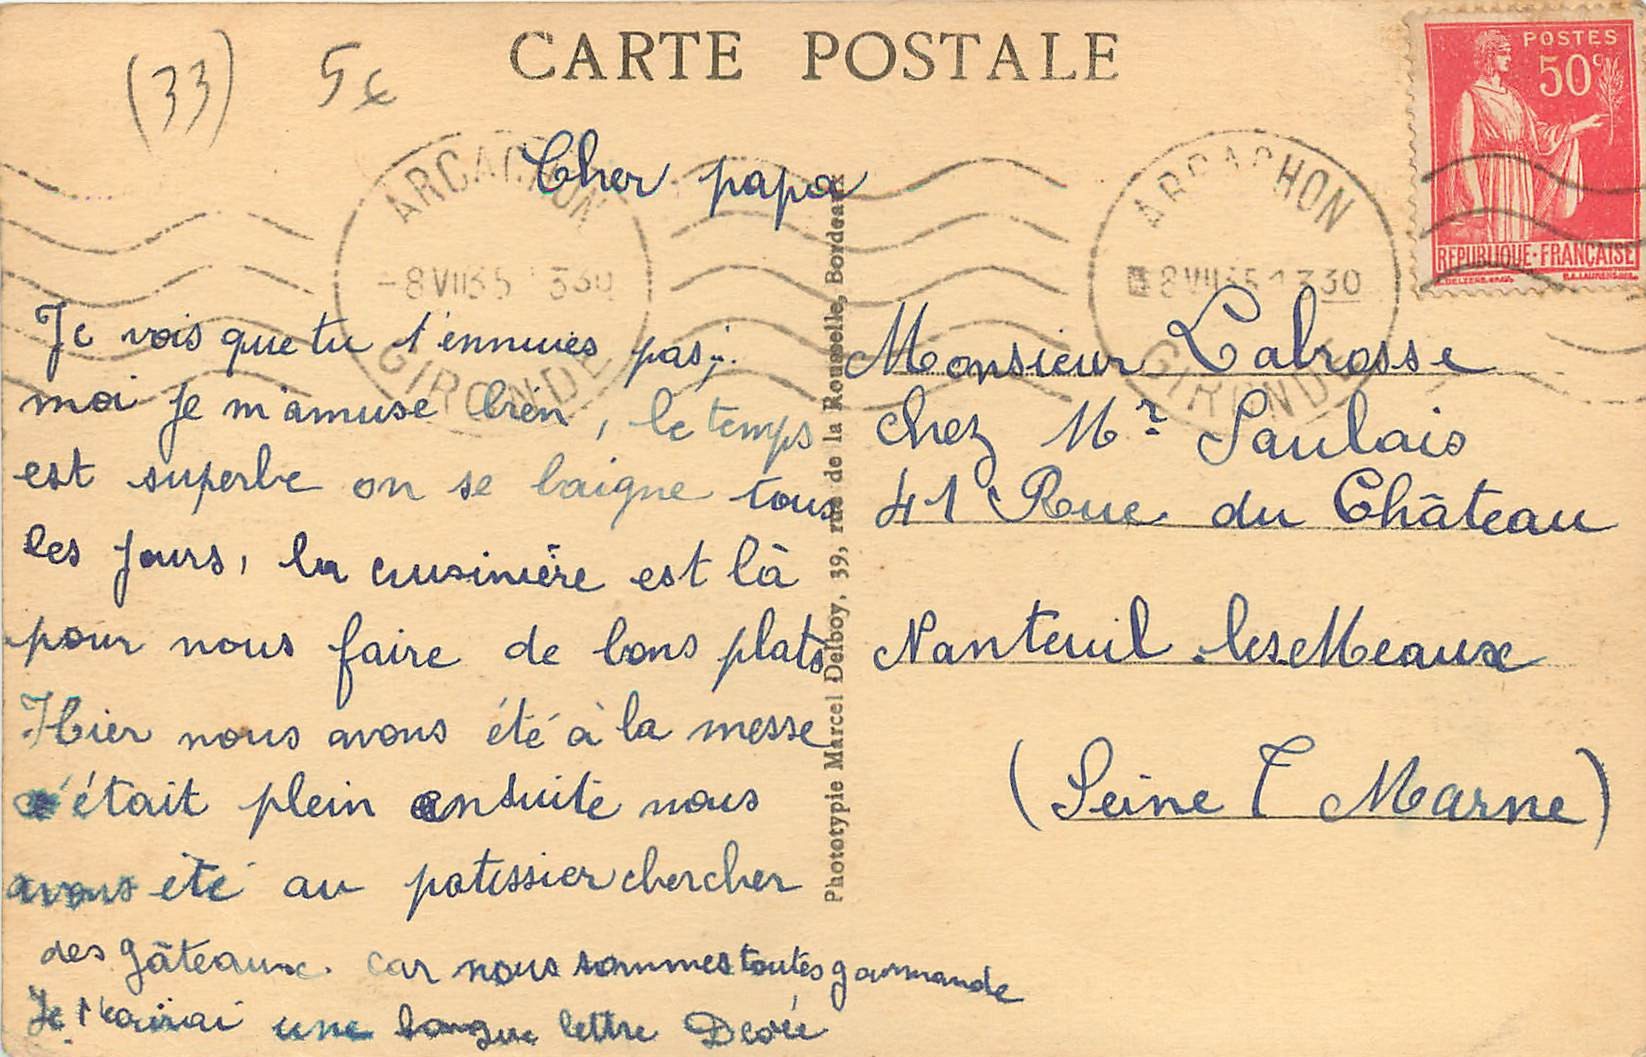 (33) 5€
CARTE POSTALE
POSTES
50c
REPUBLIQUE·FRANÇAISE
ARCACHON
-8 VII 35 1330
GIRONDE
ARCACHON
8 VII 35 1330
GIRONDE
Cher papa
Je vois que tu t'ennuies pas,
moi je m'amuse bien, le temps
est superbe on se baigne tous
les jours, la cuisinière est là
pour nous faire de bons plats
Hier nous avons été à la messe
c'était plein ensuite nous
avons été au patissier chercher
des gâteaux. car nous sommes toutes gourmande
Je une longue lettre
Phototypie Marcel Delboy, 39, rue de la Rousselle, Bordeaux
Monsieur Labrosse
chez Mr Saulais
41 Rue du Château
Nanteuil les Meaux
(Seine & Marne)